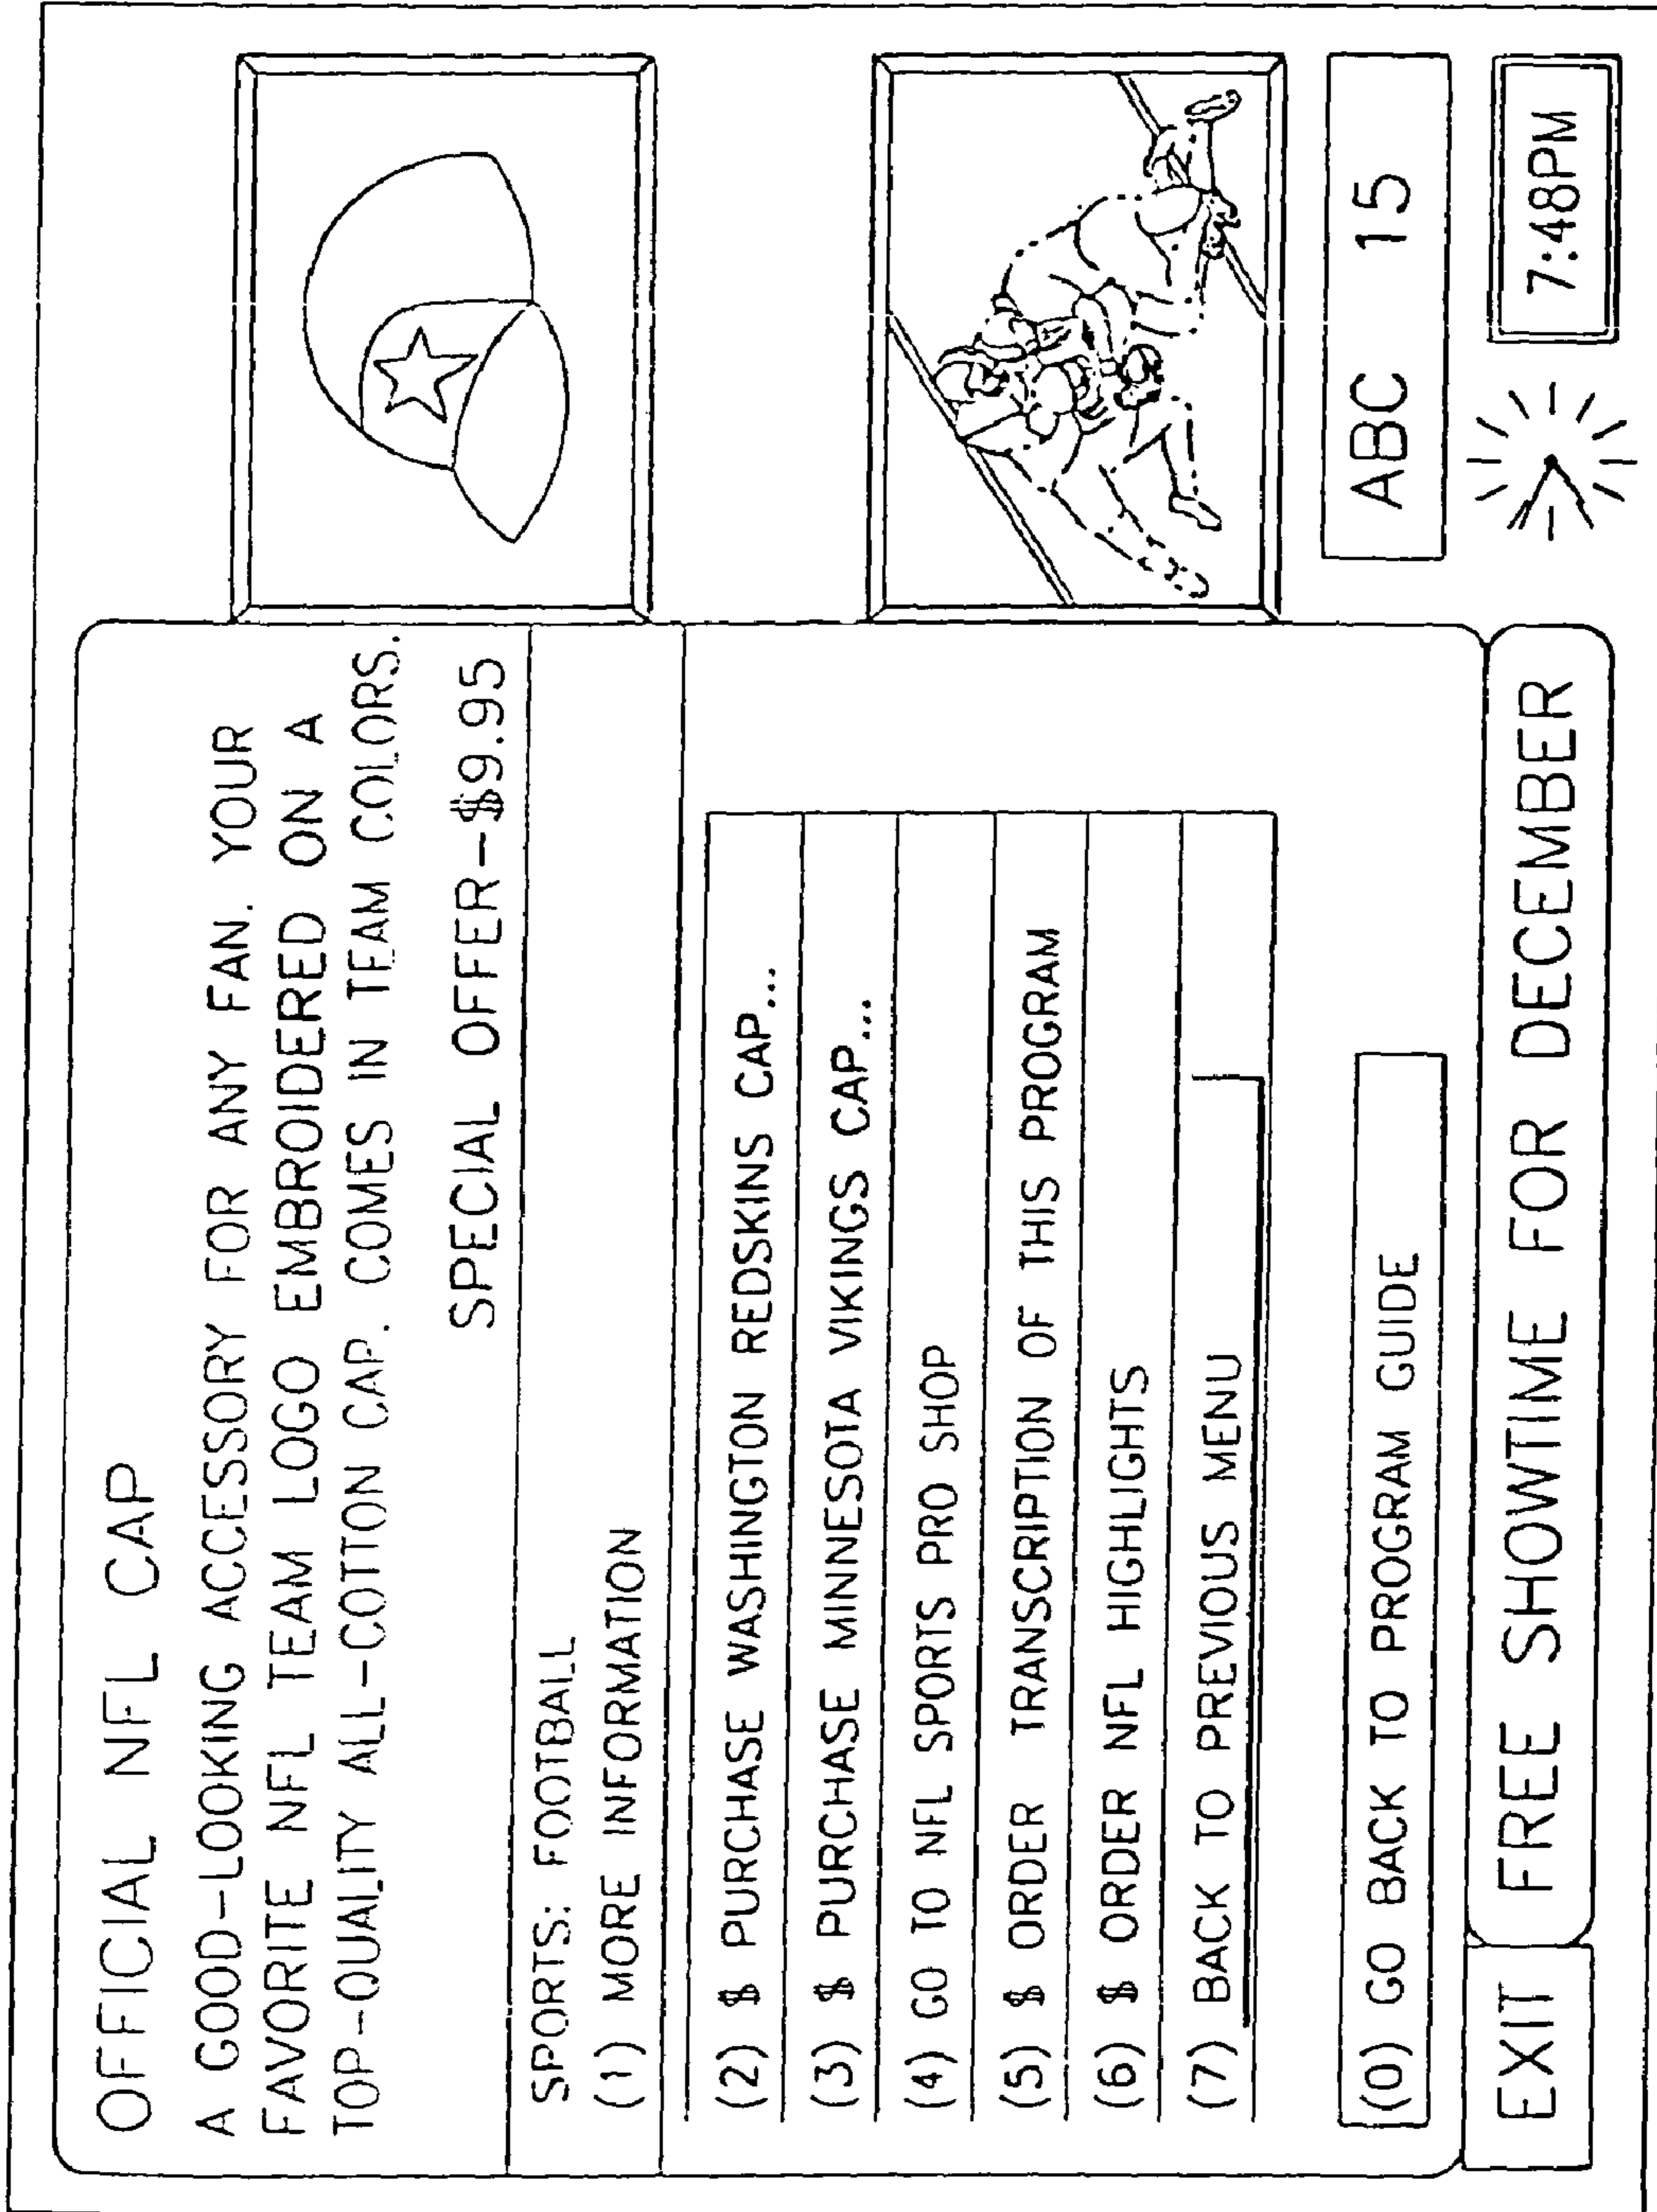 OFFICIAL NFL CAP
A GOOD-LOOKING ACCESSORY FOR ANY FAN. YOUR
FAVORITE NFL TEAM LOGO EMBROIDERED ON A
TOP-QUALITY ALL-COTTON CAP. COMES IN TEAM COLORS.
SPECIAL OFFER-$9.95
SPORTS: FOOTBALL
(1) MORE INFORMATION
(2) $ PURCHASE WASHINGTON REDSKINS CAP...
(3) $ PURCHASE MINNESOTA VIKINGS CAP...
(4) GO TO NFL SPORTS PRO SHOP
(5) $ ORDER TRANSCRIPTION OF THIS PROGRAM
(6) $ ORDER NFL HIGHLIGHTS
(7) BACK TO PREVIOUS MENU
(0) GO BACK TO PROGRAM GUIDE
EXIT FREE SHOWTIME FOR DECEMBER
ABC 15
7:48PM